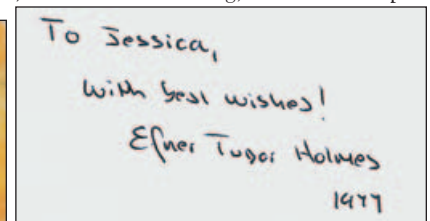 To Jessica,
With best wishes!
Efner Tudor Holmes
1977